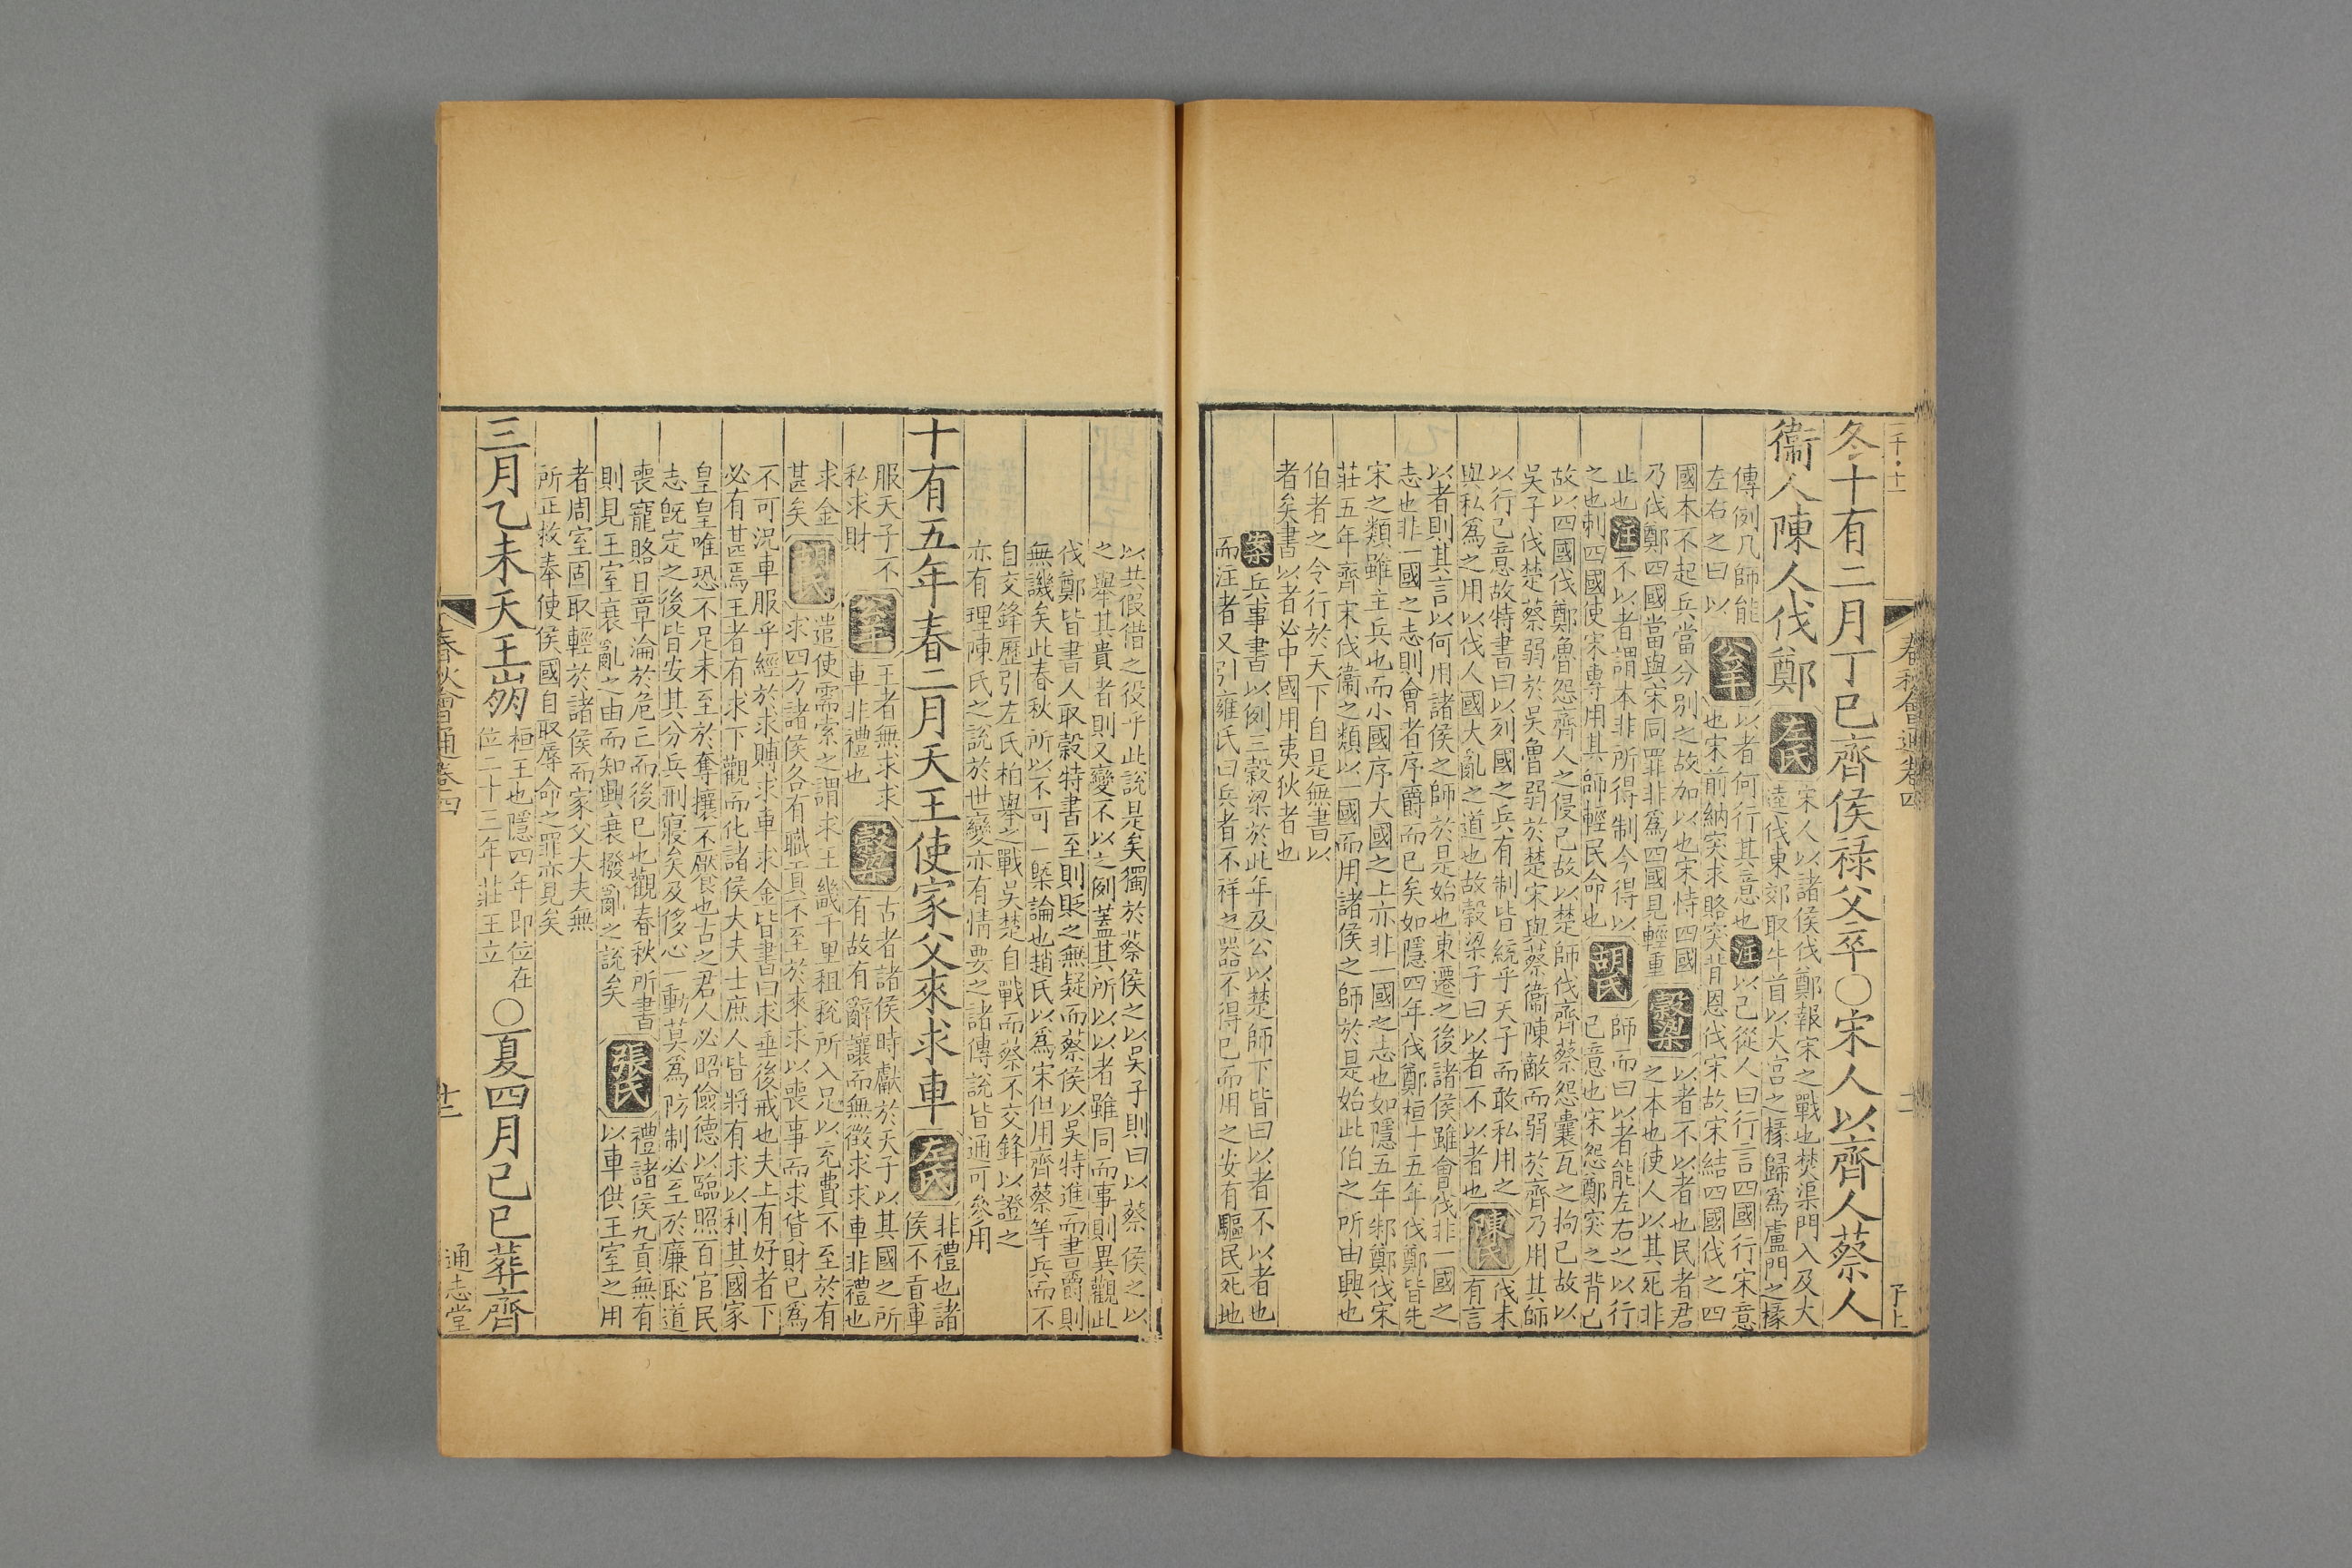 春秋會通卷四
冬十有二月丁巳齊侯祿父卒○宋人以齊人蔡人
衞人陳人伐鄭 左氏 宋人以諸侯伐鄭報宋之戰也焚渠門入及大
逵伐東郊取牛首以大宮之椽歸爲盧門之椽
傳例凡師能
左右之曰以 公羊 以者何行其意也 注 以己從人曰行言四國行宋意
也宋前納突求賂突背恩伐宋故宋結四國伐之四
國本不起兵當分別之故加以也宋恃四國
乃伐鄭四國當與宋同罪非爲四國見輕重 穀梁 以者不以者也民者君
之本也使人以其死非
止也 注 不以者謂本非所得制今得以
之也刺四國使宋專用其師輕民命也 胡氏 師而曰以者能左右之以行
己意也宋怨鄭突之背己
故以四國伐鄭魯怨齊人之侵己故以楚師伐齊蔡怨囊瓦之拘己故以
吳子伐楚蔡弱於吳魯弱於楚宋與蔡衞陳敵而弱於齊乃用其師
以行己意故特書曰以列國之兵有制皆統乎天子而敢私用之
與私爲之用以伐人國大亂之道也故穀梁子曰以者不以者也 陳氏 伐未
有言
以者則其言以何用諸侯之師於是始也東遷之後諸侯雖會伐非一國之
志也非一國之志則會者序爵而已矣如隱四年伐鄭桓十五年伐鄭皆先
宋之類雖主兵也而小國序大國之上亦非一國之志也如隱五年邾鄭伐宋
莊五年齊宋伐衞之類以一國而用諸侯之師於是始此伯之所由興也
伯者之令行於天下自是無書以
者矣書以者必中國用夷狄者也
案 兵事書以例三穀梁於此年及公以楚師下皆曰以者不以者也
而注者又引雍氏曰兵者不祥之器不得已而用之安有驅民死地
以共假借之役乎此說是矣獨於蔡侯之以吳子則曰以蔡侯之以
之舉其貴者則又變不以之例蓋其所以以者雖同而事則異觀此
伐鄭皆書人取穀特書至則貶之無疑而蔡侯以吳特進而書爵則
無譏矣此春秋所以不可一槩論也趙氏以爲宋但用齊蔡等兵而不
自交鋒歷引左氏柏舉之戰吳楚自戰而蔡不交鋒以證之
亦有理陳氏之說於世變亦有情要之諸傳說皆通可叅用
十有五年春二月天王使家父來求車 左氏 非禮也諸
侯不貢車
服天子不
私求財 公羊 王者無求求
車非禮也 穀梁 古者諸侯時獻於天子以其國之所
有故有辭讓而無徵求求車非禮也
求金
甚矣 胡氏 遣使需索之謂求王畿千里租稅所入足以充費不至於有
求四方諸侯各有職貢不至於來求以喪事而求貨財已爲
不可況車服乎經於求賻求車求金皆書曰求垂後戒也夫上有好者下
必有甚焉王者有求下觀而化諸侯大夫士庶人皆將有求以利其國家
皇皇唯恐不足未至於奪攘不厭也古之君人必昭儉德以臨照百官民
志旣定之後皆安其分兵刑寢矣及侈心一動莫爲防制必至於廉恥道
喪寵賂日章淪於危亡而後已也觀春秋所書
則見王室衰亂之由而知興衰撥亂之說矣 張氏 禮諸侯九貢無有
以車供王室之用
者周室固取輕於諸侯而家父大夫無
所正救奉使侯國自取辱命之罪亦見矣
三月乙未天王崩 桓王也隱四年即位在
位二十三年莊王立 ○夏四月己巳葬齊
春秋會通卷四
廿二
通志堂